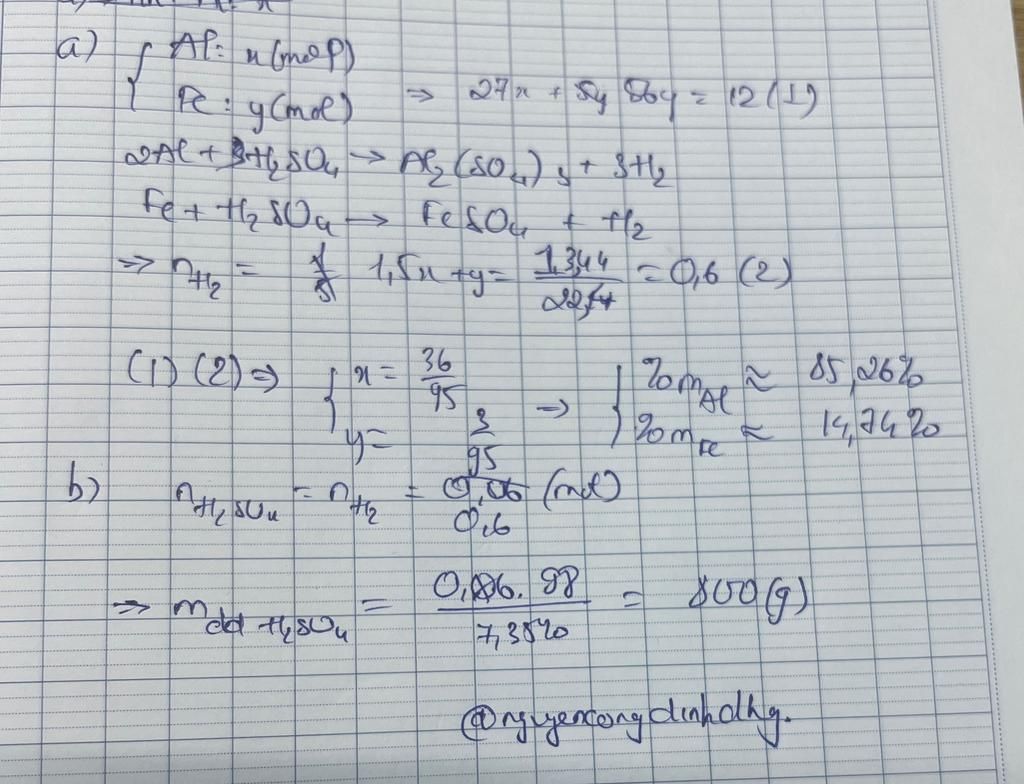 a) { Al: x (mol)
Fe: y (mol) => 27x + 56y = 12 (1)
2Al + 3H2SO4 -> Al2(SO4)3 + 3H2
Fe + H2SO4 -> FeSO4 + H2
=> nH2 = 1,5x + y = 13,44 / 22,4 = 0,6 (2)
(1) (2) => { x = 36/95 => { %mAl ≈ 85,26%
y = 3/95 %mFe ≈ 14,74%
b) nH2SO4 = nH2 = 0,06 (mol)
0,6
=> mdd H2SO4 = 0,6 . 98 / 7,35% = 800 (g)
@nguyencongdinhdhg.